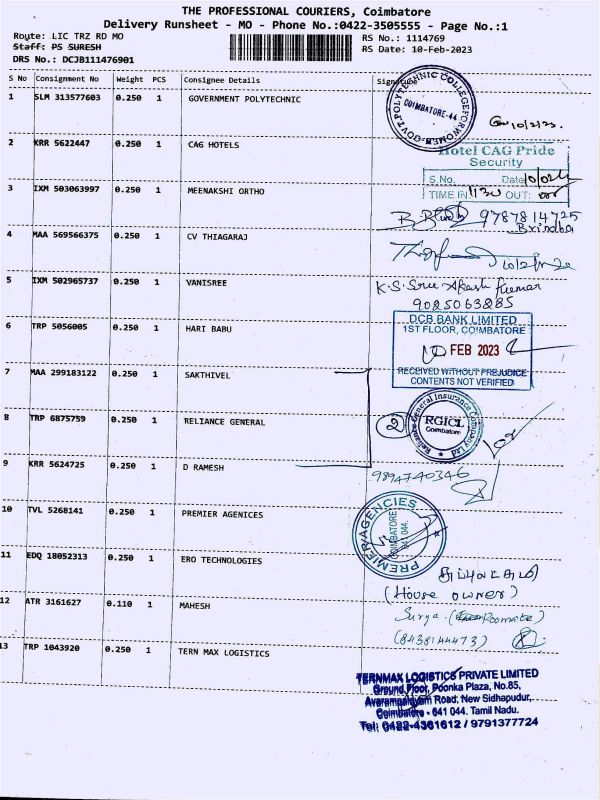 THE PROFESSIONAL COURIERS, Coimbatore
Delivery Runsheet - MO - Phone No.:0422-3505555 - Page No.:1
Route: LIC TRZ RD MO
RS No.: 1114769
Staff: PS SURESH
RS Date: 10-Feb-2023
DRS No.: DCJB111476901
S No Consignment No Weight PCS Consignee Details Signature
1 SLM 313577603 0.250 1 GOVERNMENT POLYTECHNIC
GOVT.POLYTECHNIC COLLEGE FOR WOMEN
COIMBATORE-44
10/2/23.
2 KRR 5622447 0.250 1 CAG HOTELS
Hotel CAG Pride
Security
S.No. Date
TIME IN 1130 OUT:
3 IXM 503063997 0.250 1 MEENAKSHI ORTHO
9787814725
Brindha
4 MAA 569566375 0.250 1 CV THIAGARAJ
5 IXM 502965737 0.250 1 VANISREE
K.S. Sree Akash Kumar
9025063885
6 TRP 5056005 0.250 1 HARI BABU
DCB BANK LIMITED
1ST FLOOR, COIMBATORE
10 FEB 2023
RECEIVED WITHOUT PREJUDICE
CONTENTS NOT VERIFIED
7 MAA 299183122 0.250 1 SAKTHIVEL
8 TRP 6875759 0.250 1 RELIANCE GENERAL
2
Reliance General Insurance Company Ltd
RGICL
Coimbatore
9 KRR 5624725 0.250 1 D RAMESH
9894740346
10 TVL 5268141 0.250 1 PREMIER AGENICES
PREMIER AGENCIES
COIMBATORE
641 044.
11 EDQ 18052313 0.250 1 ERO TECHNOLOGIES
(House owner)
12 ATR 3161627 0.110 1 MAHESH
Surya. (Roomate)
(8438144473)
13 TRP 1043920 0.250 1 TERN MAX LOGISTICS
TERNMAX LOGISTICS PRIVATE LIMITED
Ground Floor, Poonka Plaza, No.85,
Avarampalayam Road, New Sidhapudur,
Coimbatore - 641 044. Tamil Nadu.
Tel: 0422-4361612 / 9791377724